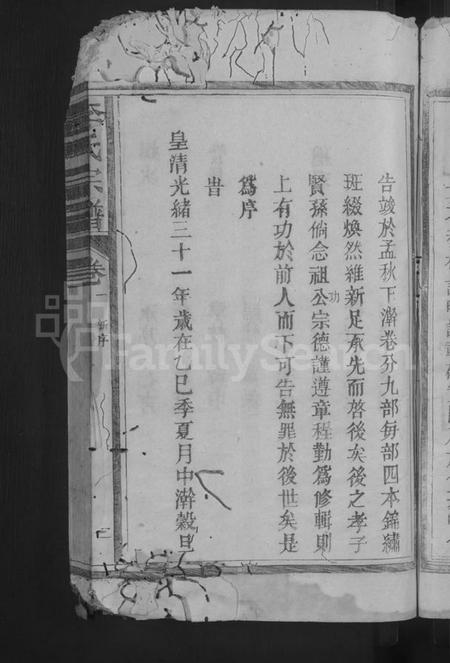 告竣於孟秋下澣卷分九部每部四本錦繡
班綴煥然維新足承先而啓後矣後之孝子
賢孫倘念祖功公宗德謹遵章程勤爲修輯則
上有功於前人而下可告無罪於後世矣是
爲序
旹
皇清光緒三十一年歲在乙巳季夏月中澣穀旦
李氏宗譜
卷一
新序
FamilySearch